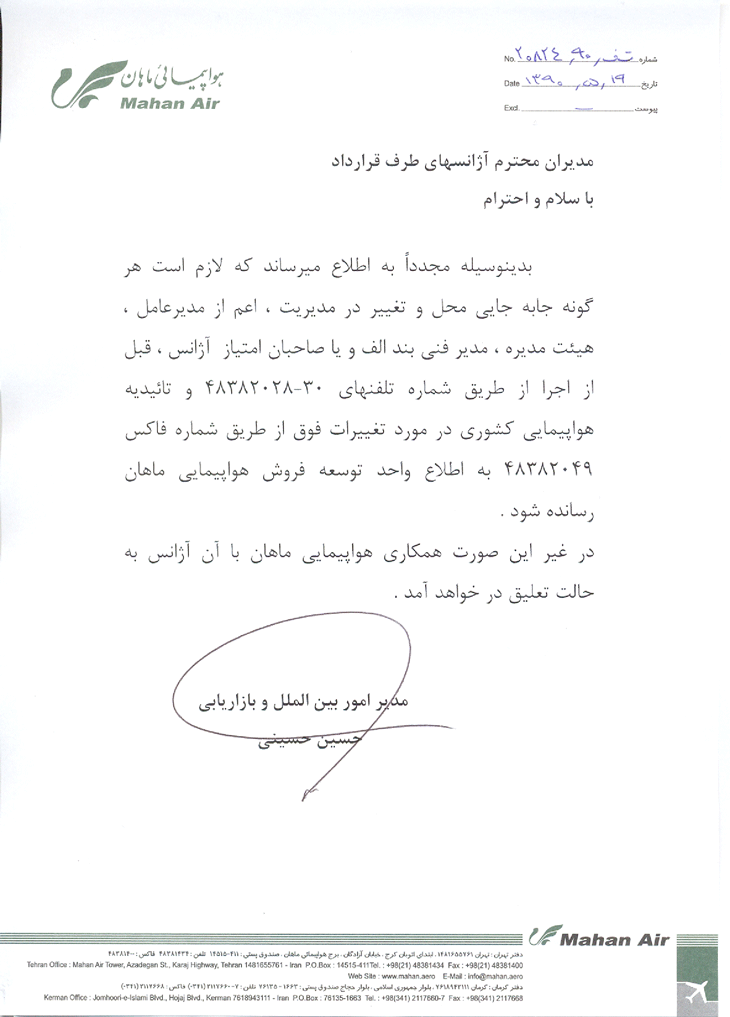 هواپیمائی ماهان
Mahan Air
شماره No. ۲۰۸۲۴ / ۹۰ /
تاریخ Date ۱۳۹۰ / ۵ / ۱۹
پیوست Excl. —
مدیران محترم آژانسهای طرف قرارداد
با سلام و احترام
بدینوسیله مجدداً به اطلاع میرساند که لازم است هر
گونه جابه جایی محل و تغییر در مدیریت ، اعم از مدیرعامل ،
هیئت مدیره ، مدیر فنی بند الف و یا صاحبان امتیاز آژانس ، قبل
از اجرا از طریق شماره تلفنهای ۳۰-۴۸۳۸۲۰۲۸ و تائیدیه
هواپیمایی کشوری در مورد تغییرات فوق از طریق شماره فاکس
۴۸۳۸۲۰۴۹ به اطلاع واحد توسعه فروش هواپیمایی ماهان
رسانده شود .
در غیر این صورت همکاری هواپیمایی ماهان با آن آژانس به
حالت تعلیق در خواهد آمد .
مدیر امور بین الملل و بازاریابی
حسین حسینی
Mahan Air
دفتر تهران : تهران ۱۴۸۱۶۵۵۷۶۱، ابتدای اتوبان کرج ، خیابان آزادگان ، برج هواپیمائی ماهان ، صندوق پستی : ۴۱۱-۱۴۵۱۵ تلفن : ۴۸۳۸۱۴۳۴ فاکس : ۴۸۳۸۱۴۰۰
Tehran Office : Mahan Air Tower, Azadegan St., Karaj Highway, Tehran 1481655761 - Iran P.O.Box : 14515-411Tel. : +98(21) 48381434 Fax : +98(21) 48381400
Web Site : www.mahan.aero E-Mail : info@mahan.aero
دفتر کرمان : کرمان ۷۶۱۸۹۴۳۱۱۱ ، بلوار جمهوری اسلامی ، بلوار حجاج صندوق پستی : ۱۶۶۳ - ۷۶۱۳۵ تلفن : ۷-۲۱۱۷۶۶۰ (۰۳۴۱) فاکس : ۲۱۱۷۶۶۸ (۰۳۴۱)
Kerman Office : Jomhoori-e-Islami Blvd., Hojaj Blvd., Kerman 7618943111 - Iran P.O.Box : 76135-1663 Tel. : +98(341) 2117660-7 Fax : +98(341) 2117668